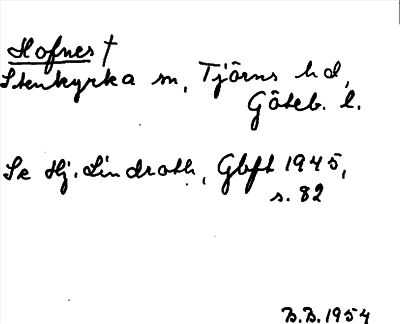 Hofnes †
Stenkyrka sn, Tjörns hd,
Göteb. l.
Se Hj. Lindroth, Gbft 1945,
s. 82
B.B. 1954